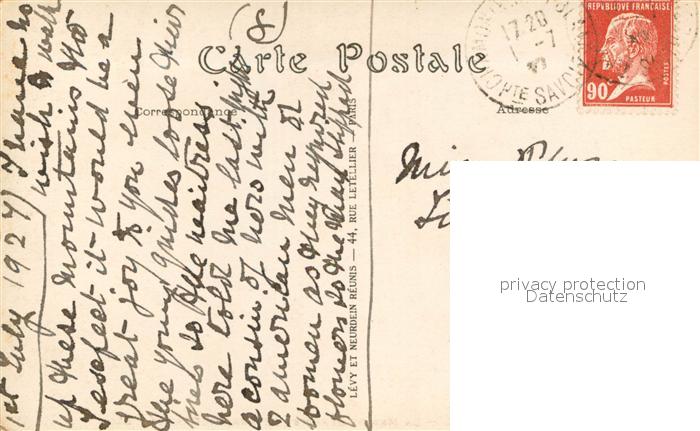 (8)
Carte Postale
Correspondance
Adresse
RÉPUBLIQUE FRANÇAISE
90c
POSTES
PASTEUR
17 20
1 -7
HTE SAVOIE
LÉVY ET NEURDEIN RÉUNIS — 44, RUE LETELLIER — PARIS
1st July 1927) I have no
wish to walk
up these mountains tho'
I expect it would be a
great joy to you even
The young guides lose their
lives so the waitress
here told me last night
a cousin of hers with
2 american men or
women as they required
Miss
privacy protection
Datenschutz